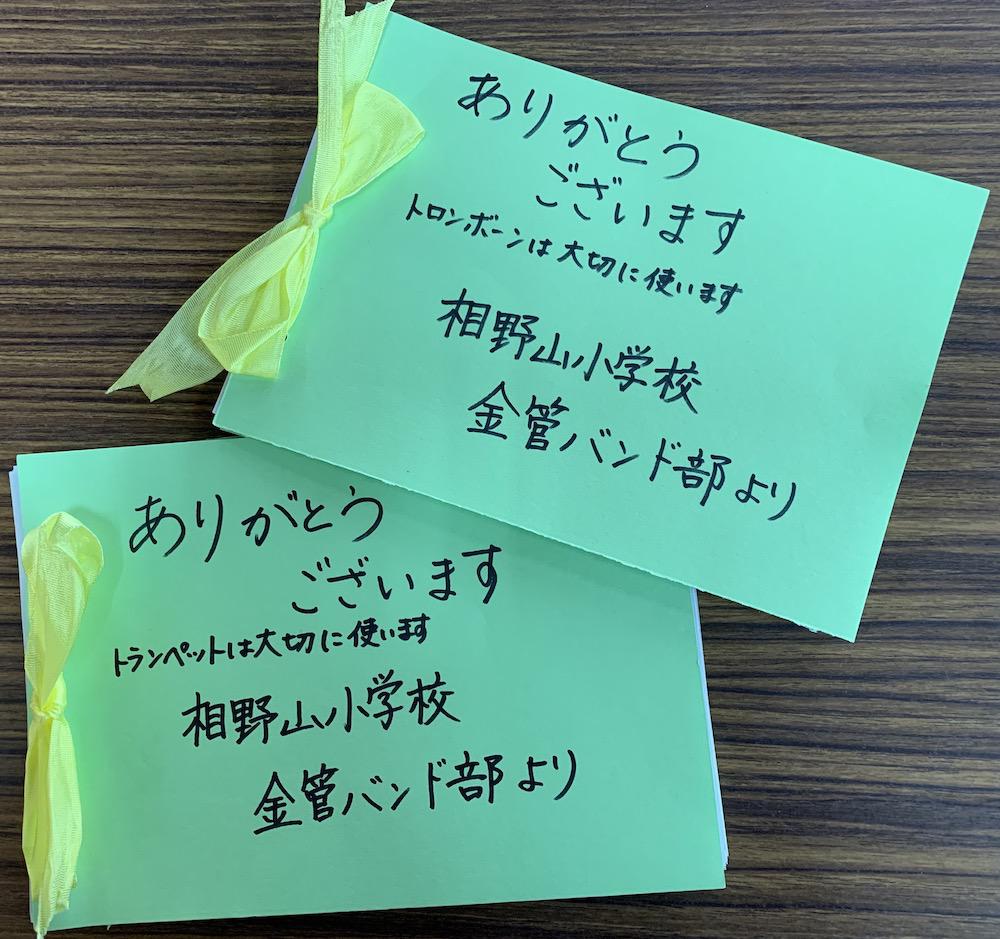 ありがとう
ございます
トロンボーンは大切に使います
相野山小学校
金管バンド部より
ありがとう
ございます
トランペットは大切に使います
相野山小学校
金管バンド部より